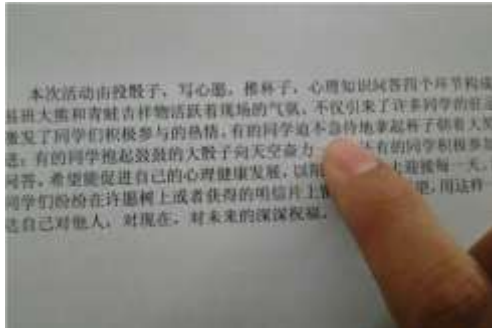 本次活动由投骰子、写心愿、推杯子、心理知识问答四个环节构成
班班大熊和青蛙吉祥物活跃着现场的气氛,不仅引来了许多同学的驻足
激发了同学们积极参与的热情,有的同学迫不急待地拿起杯子朝着人
选;有的同学抱起鼓鼓的大骰子向天空奋力 有的同学积极参
问答,希望能促进自己的心理健康发展,以 迎接每一天,
同学们纷纷在许愿树上或者获得的明信片上 吧,用这样
达自己对他人,对现在,对未来的深深祝福。